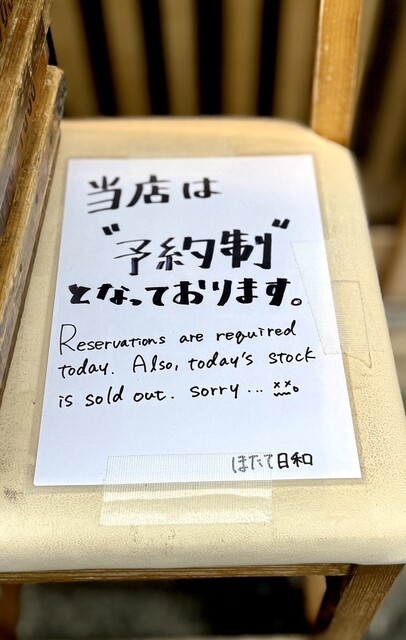 当店は
"予約制"
となっております。
Reservations are required
today. Also, today's stock
is sold out. sorry...
ほたて日和